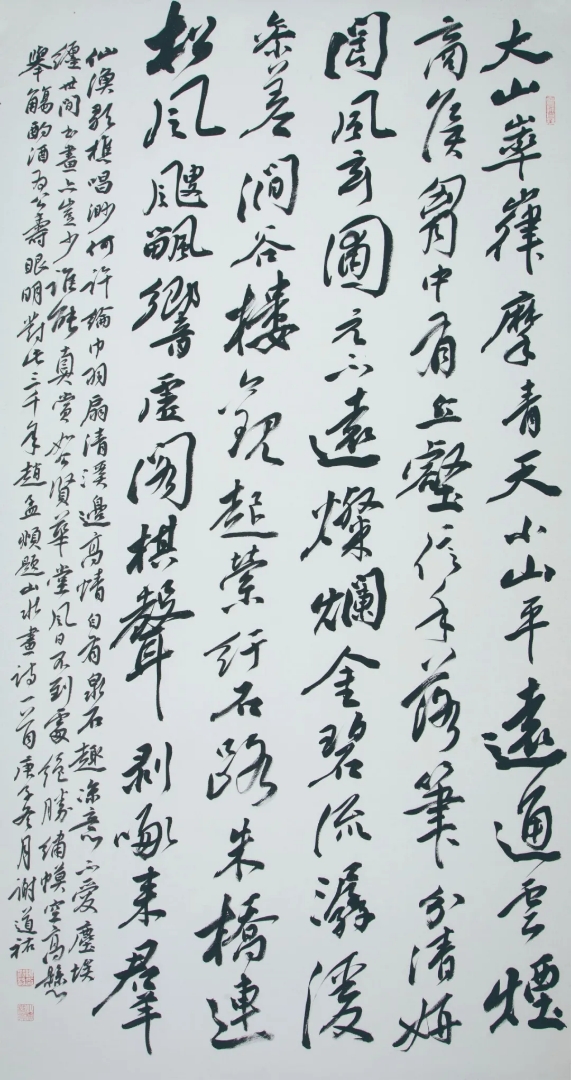 大山崒嵂摩青天小山平遠通雲煙
商侯胷中有丘壑信手落筆分清妍
閬風玄圃元不遠燦爛金碧流潺湲
參差澗谷樓觀起縈紆石路朱橋連
松風颼飀響虛閣棋聲剝啄來羣
仙漁歌樵唱渺何許綸巾羽扇清溪邊高情自有泉石趣深意不愛塵埃
纏世間書畫亦豈少誰能真賞如公賢華堂風日不到處絕勝繡幙空高懸
舉觴酌酒為公壽眼明對此三千年趙孟頫題山水畫詩一首庚子冬月謝道祐